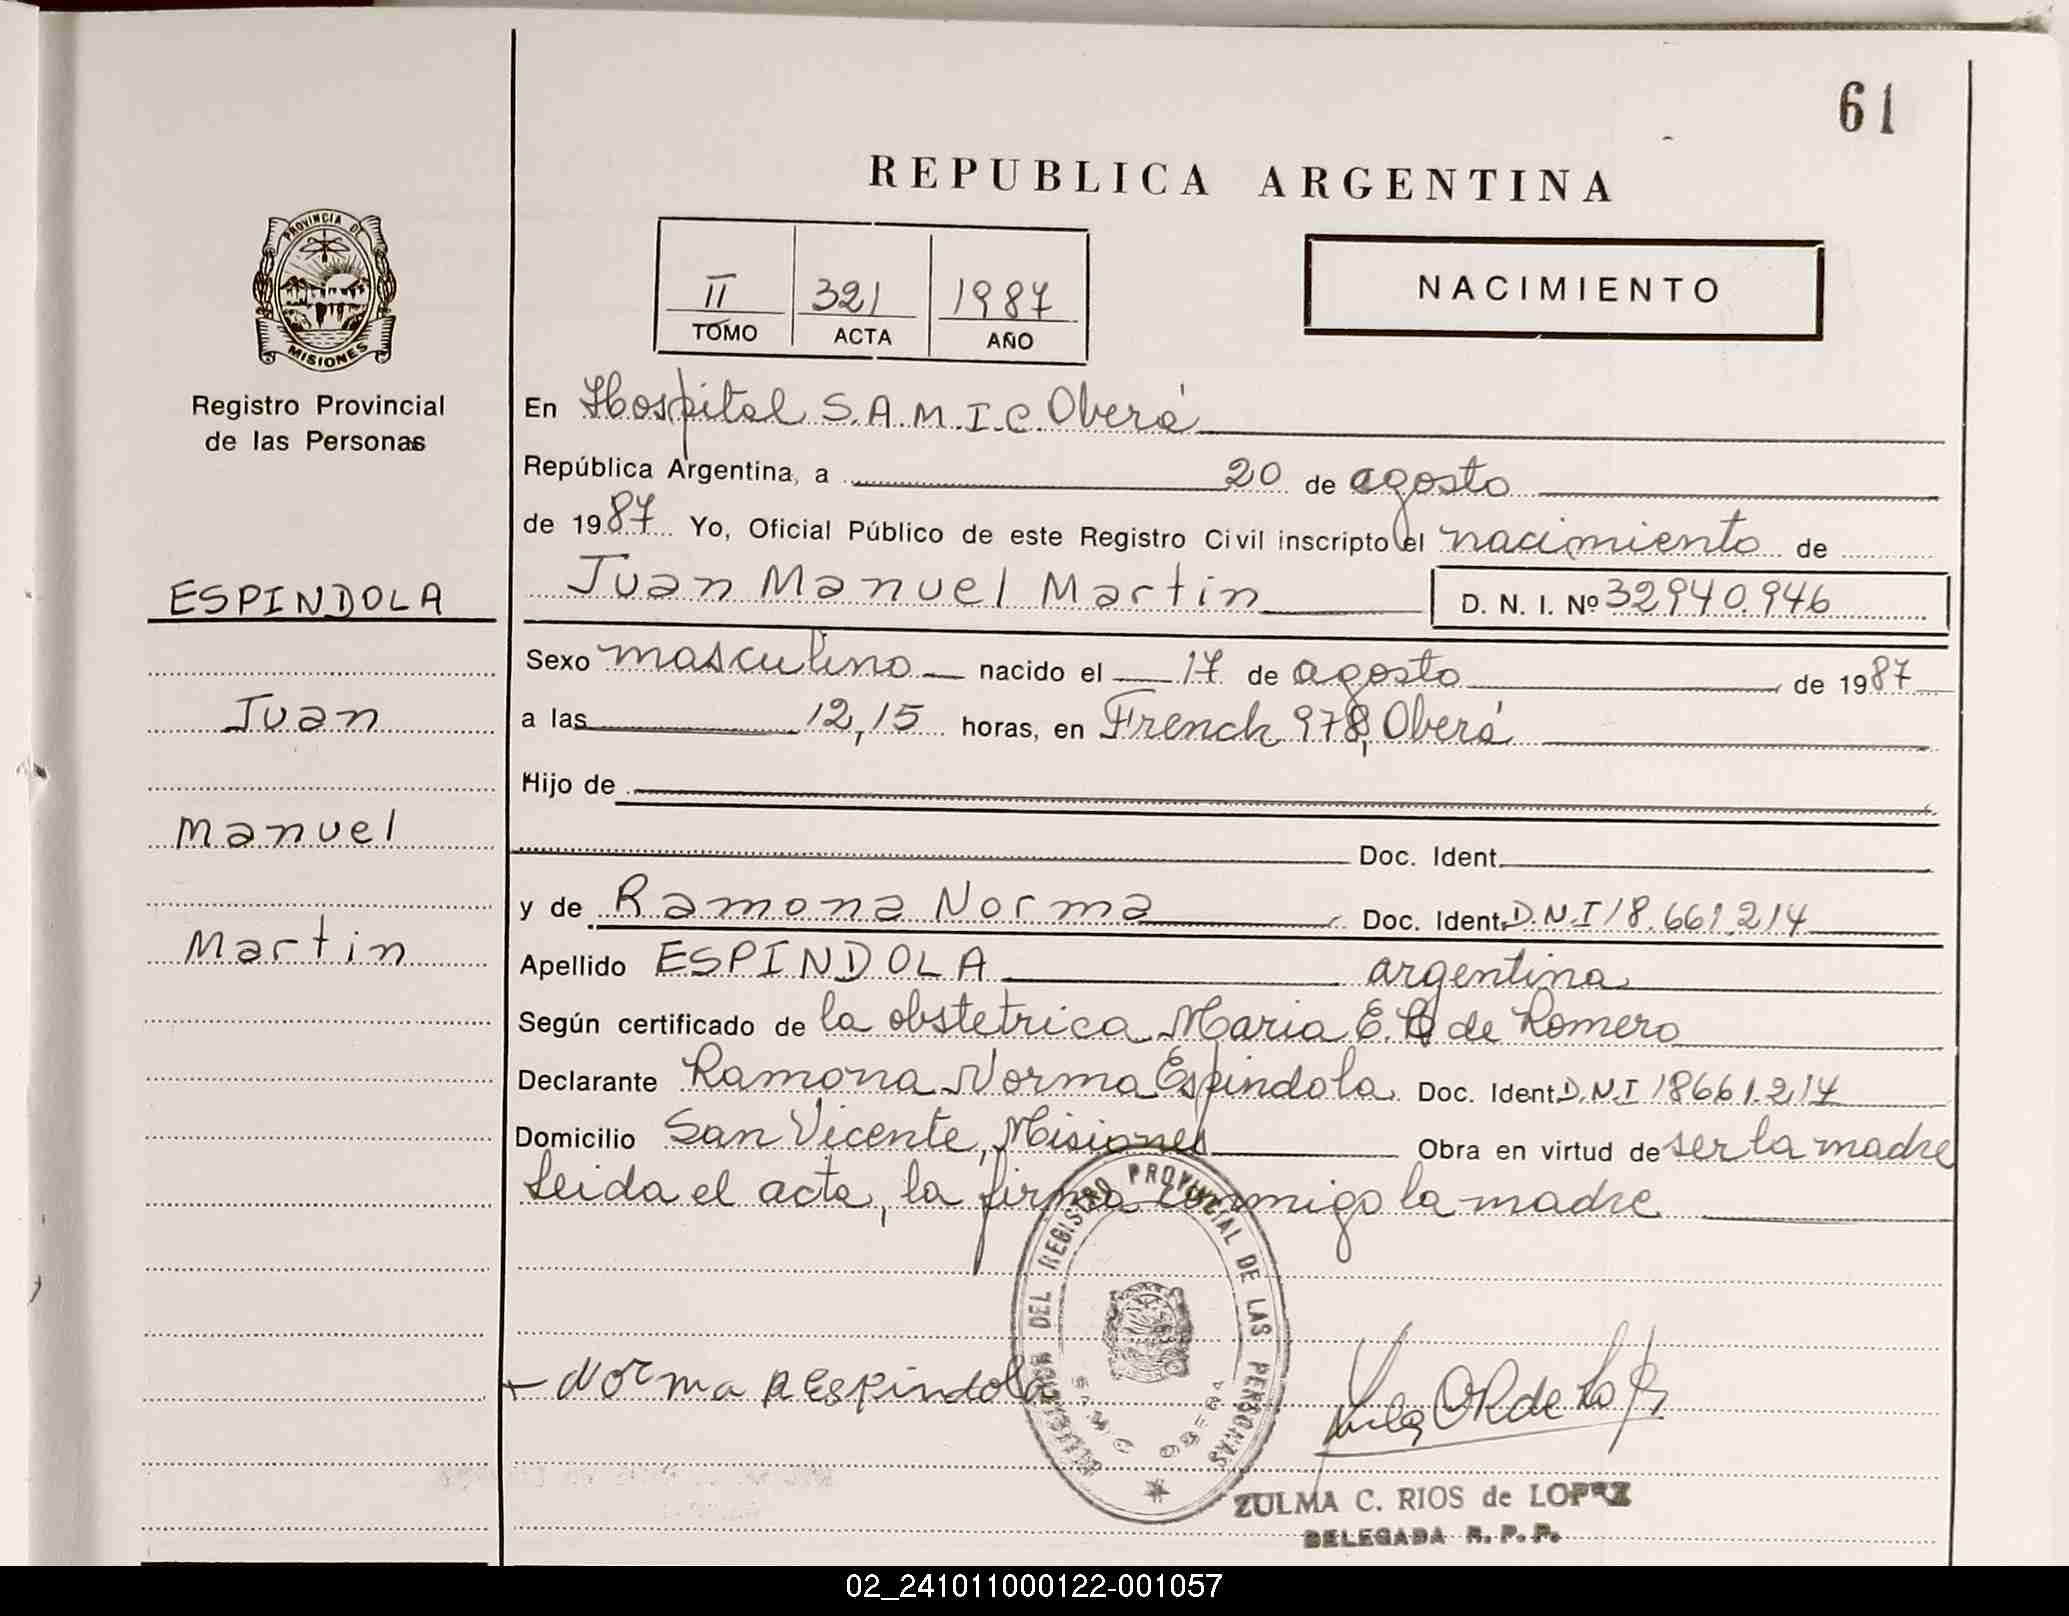 61
REPUBLICA ARGENTINA
PROVINCIA DE
MISIONES
Registro Provincial
de las Personas
II 321 1987
TOMO ACTA AÑO
NACIMIENTO
En Hospital S.A.M.I.C. Oberá
República Argentina, a 20 de agosto
de 1987 Yo, Oficial Público de este Registro Civil inscripto el nacimiento de
ESPINDOLA
Juan Manuel Martin D. N. I. Nº 32940.946
Sexo masculino nacido el 17 de agosto de 1987
Juan
a las 12,15 horas, en French 978, Oberá
Hijo de
Manuel
Doc. Ident.
y de Ramona Norma Doc. Ident. D.N.I 18.661.214
Martin
Apellido ESPINDOLA argentina
Según certificado de la obstetrica Maria E. de Romero
Declarante Ramona Norma Espindola Doc. Ident. D.N.I 18661.214
Domicilio San Vicente, Misiones Obra en virtud de ser la madre
Leida el acta, la firma conmigo la madre
DELEGACION DEL REGISTRO PROVINCIAL DE LAS PERSONAS
SAMIC OBERA
Norma R Espindola
ZULMA C. RIOS de LOPEZ
DELEGADA R. P. P.
02_241011000122-001057